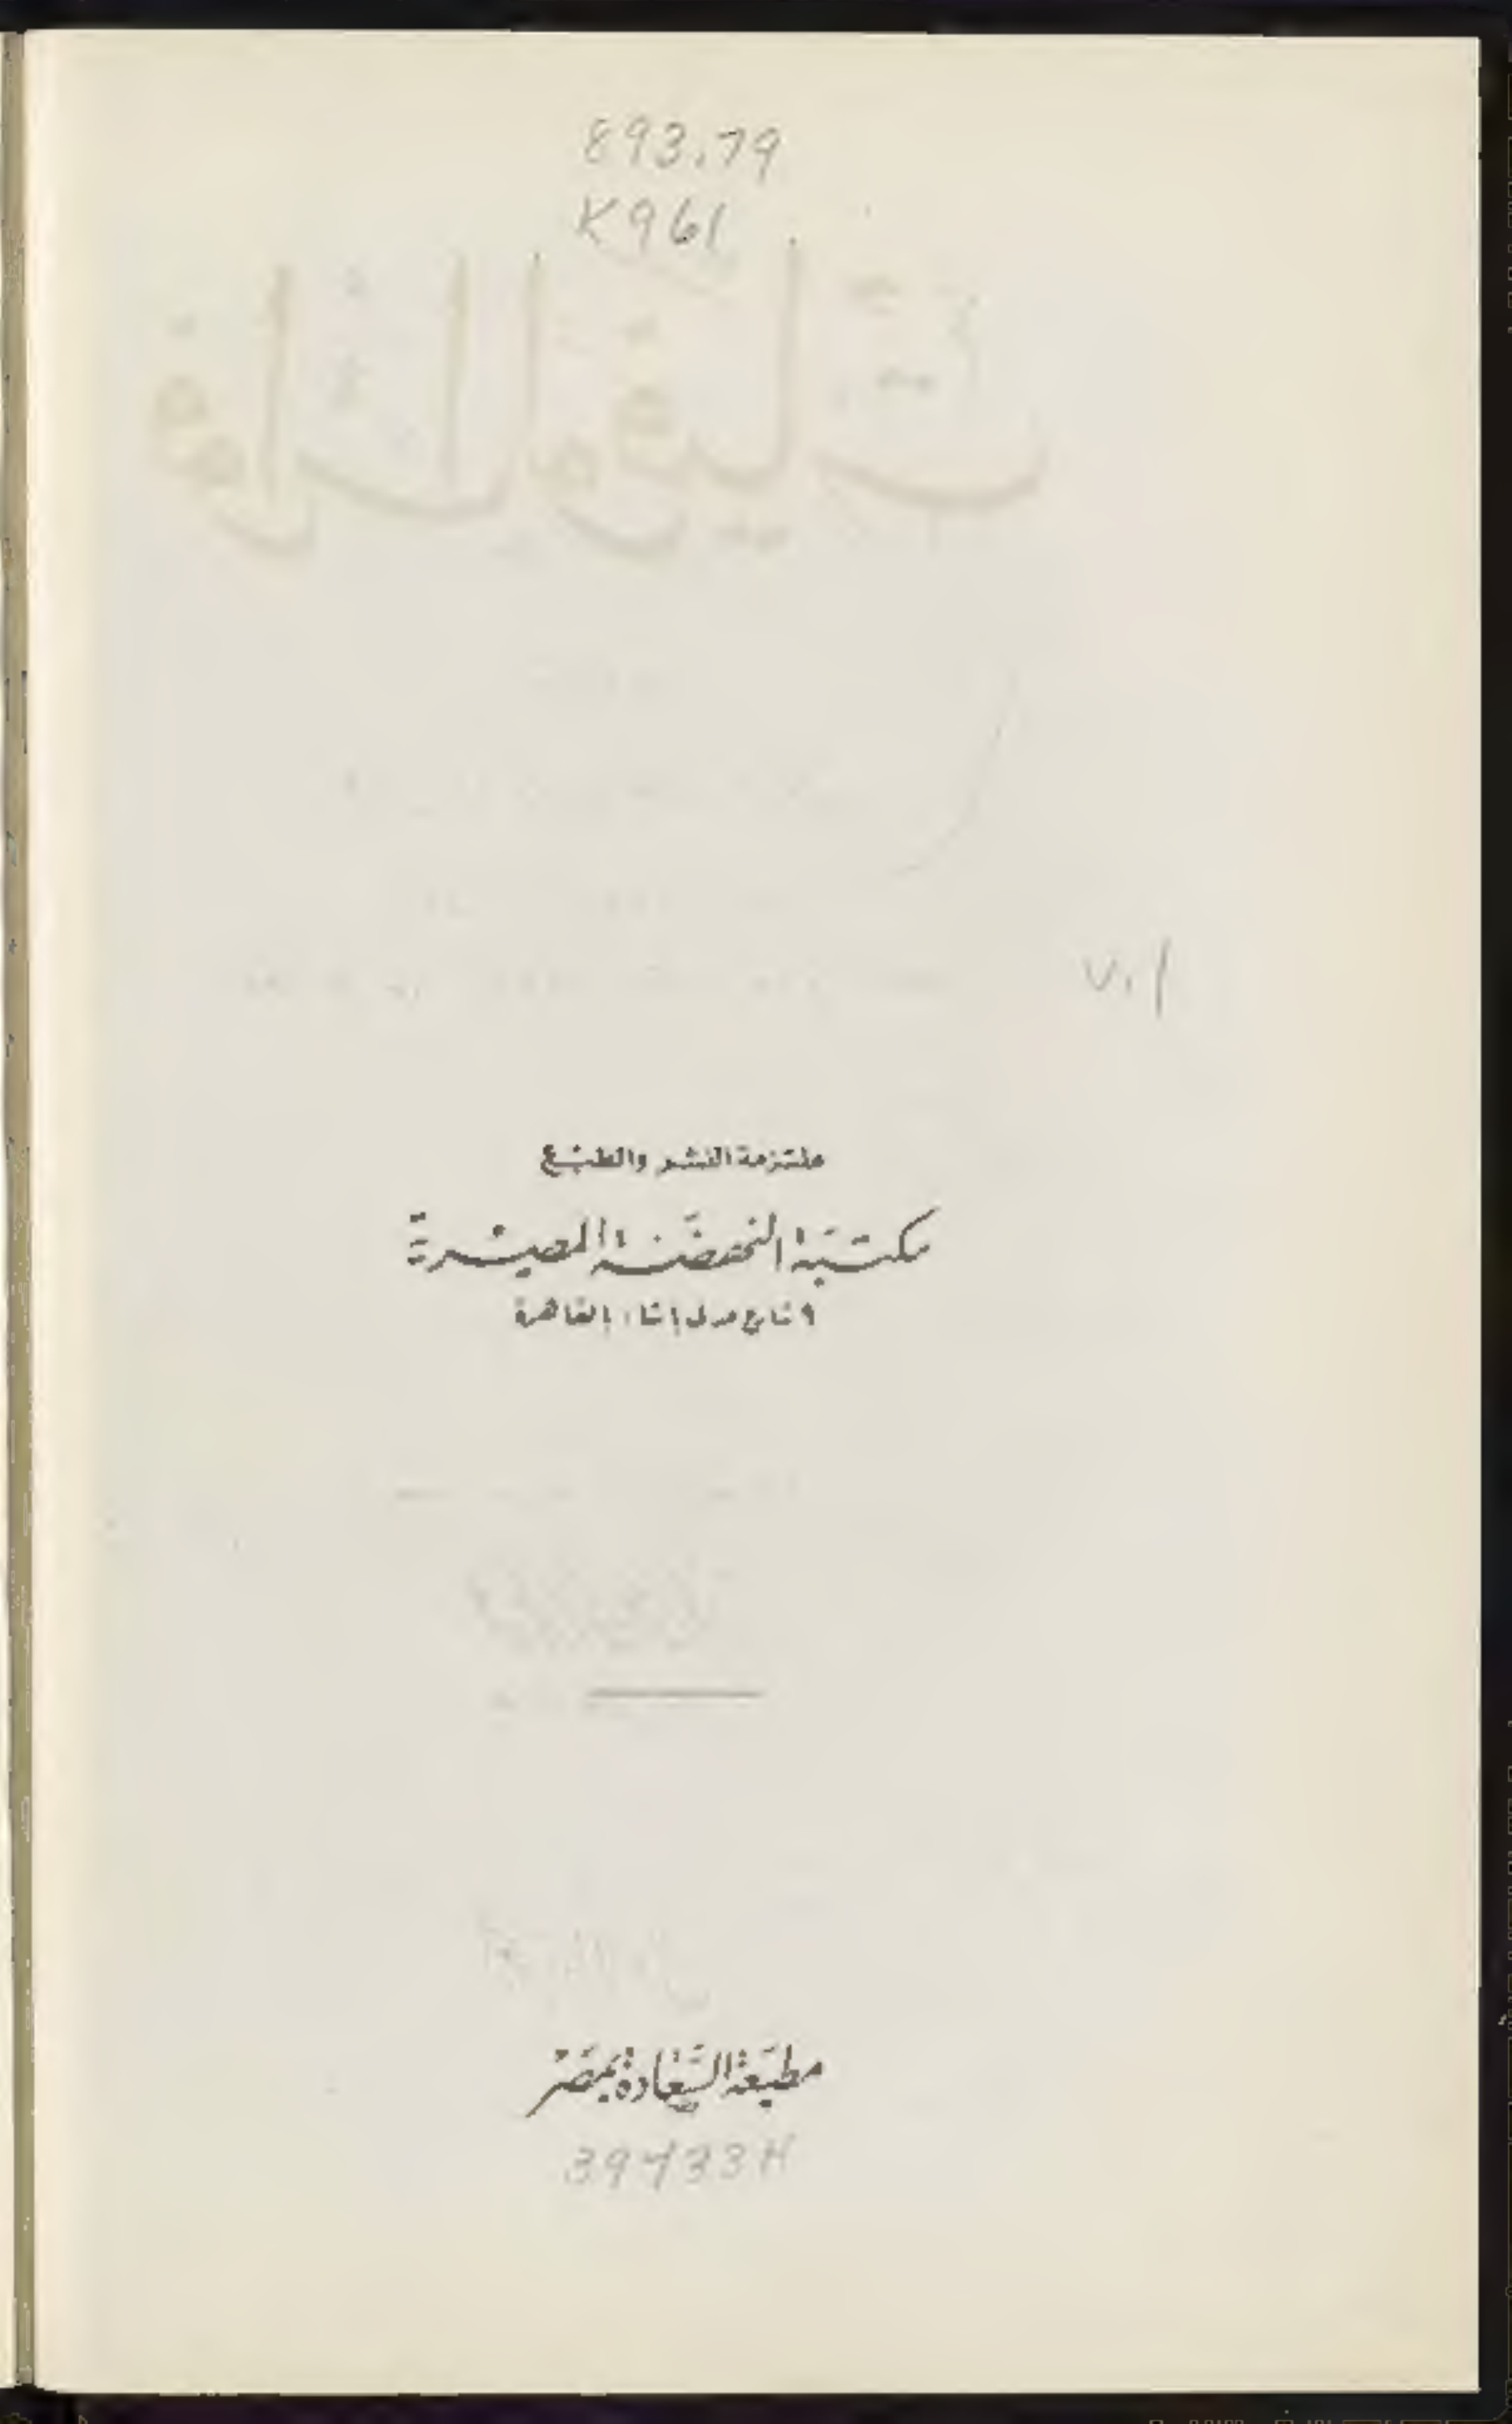 893.79
K961
v.1
ملتزمة النشر والطبع
مكتبة النهضة المصرية
٩ شارع عدلى باشا ، بالقاهرة
مطبعة السعادة بمصر
39433H